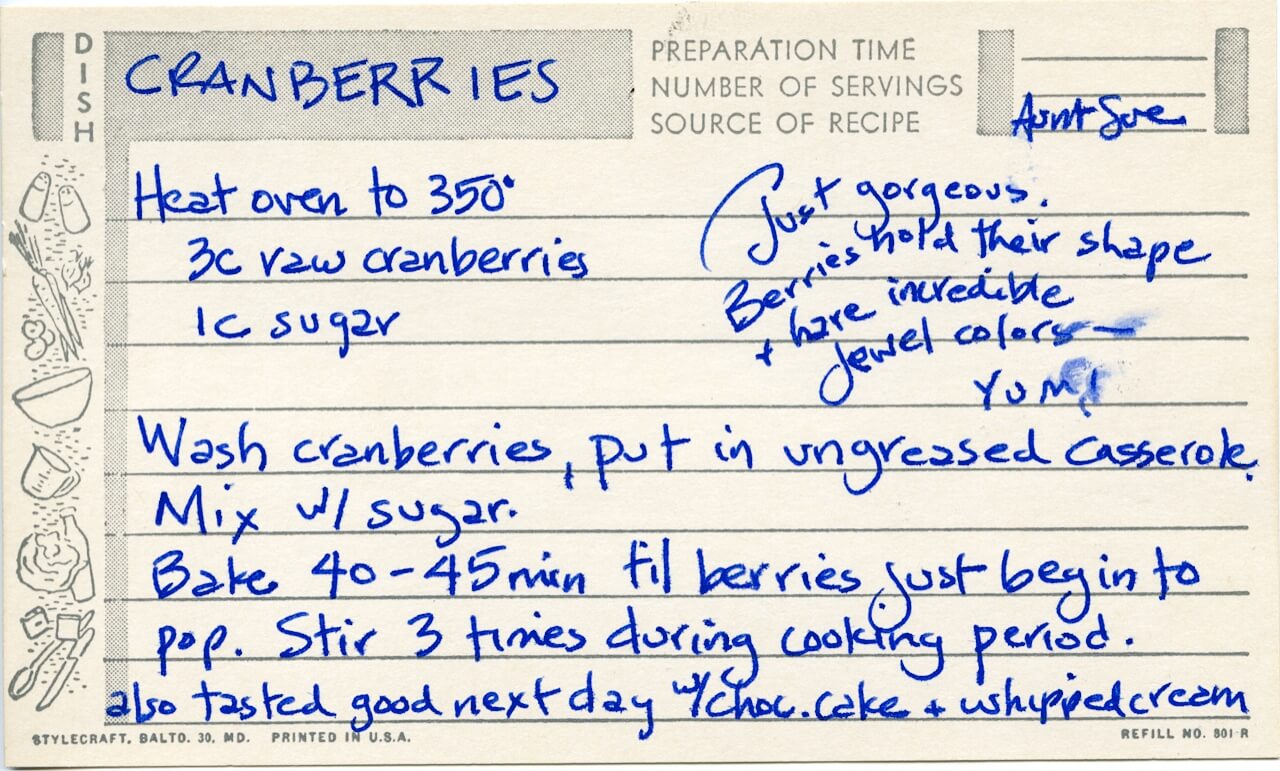 DISH
CRANBERRIES
PREPARATION TIME
NUMBER OF SERVINGS
SOURCE OF RECIPE
Aunt Sue
Heat oven to 350°
3c raw cranberries
1c sugar
Just gorgeous.
Berries hold their shape
+ have incredible
jewel colors —
YUM!
Wash cranberries, put in ungreased casserole.
Mix w/ sugar.
Bake 40-45 min til berries just begin to
pop. Stir 3 times during cooking period.
also tasted good next day w/choc. cake + whipped cream
STYLECRAFT, BALTO. 30, MD. PRINTED IN U.S.A.
REFILL NO. 801-R